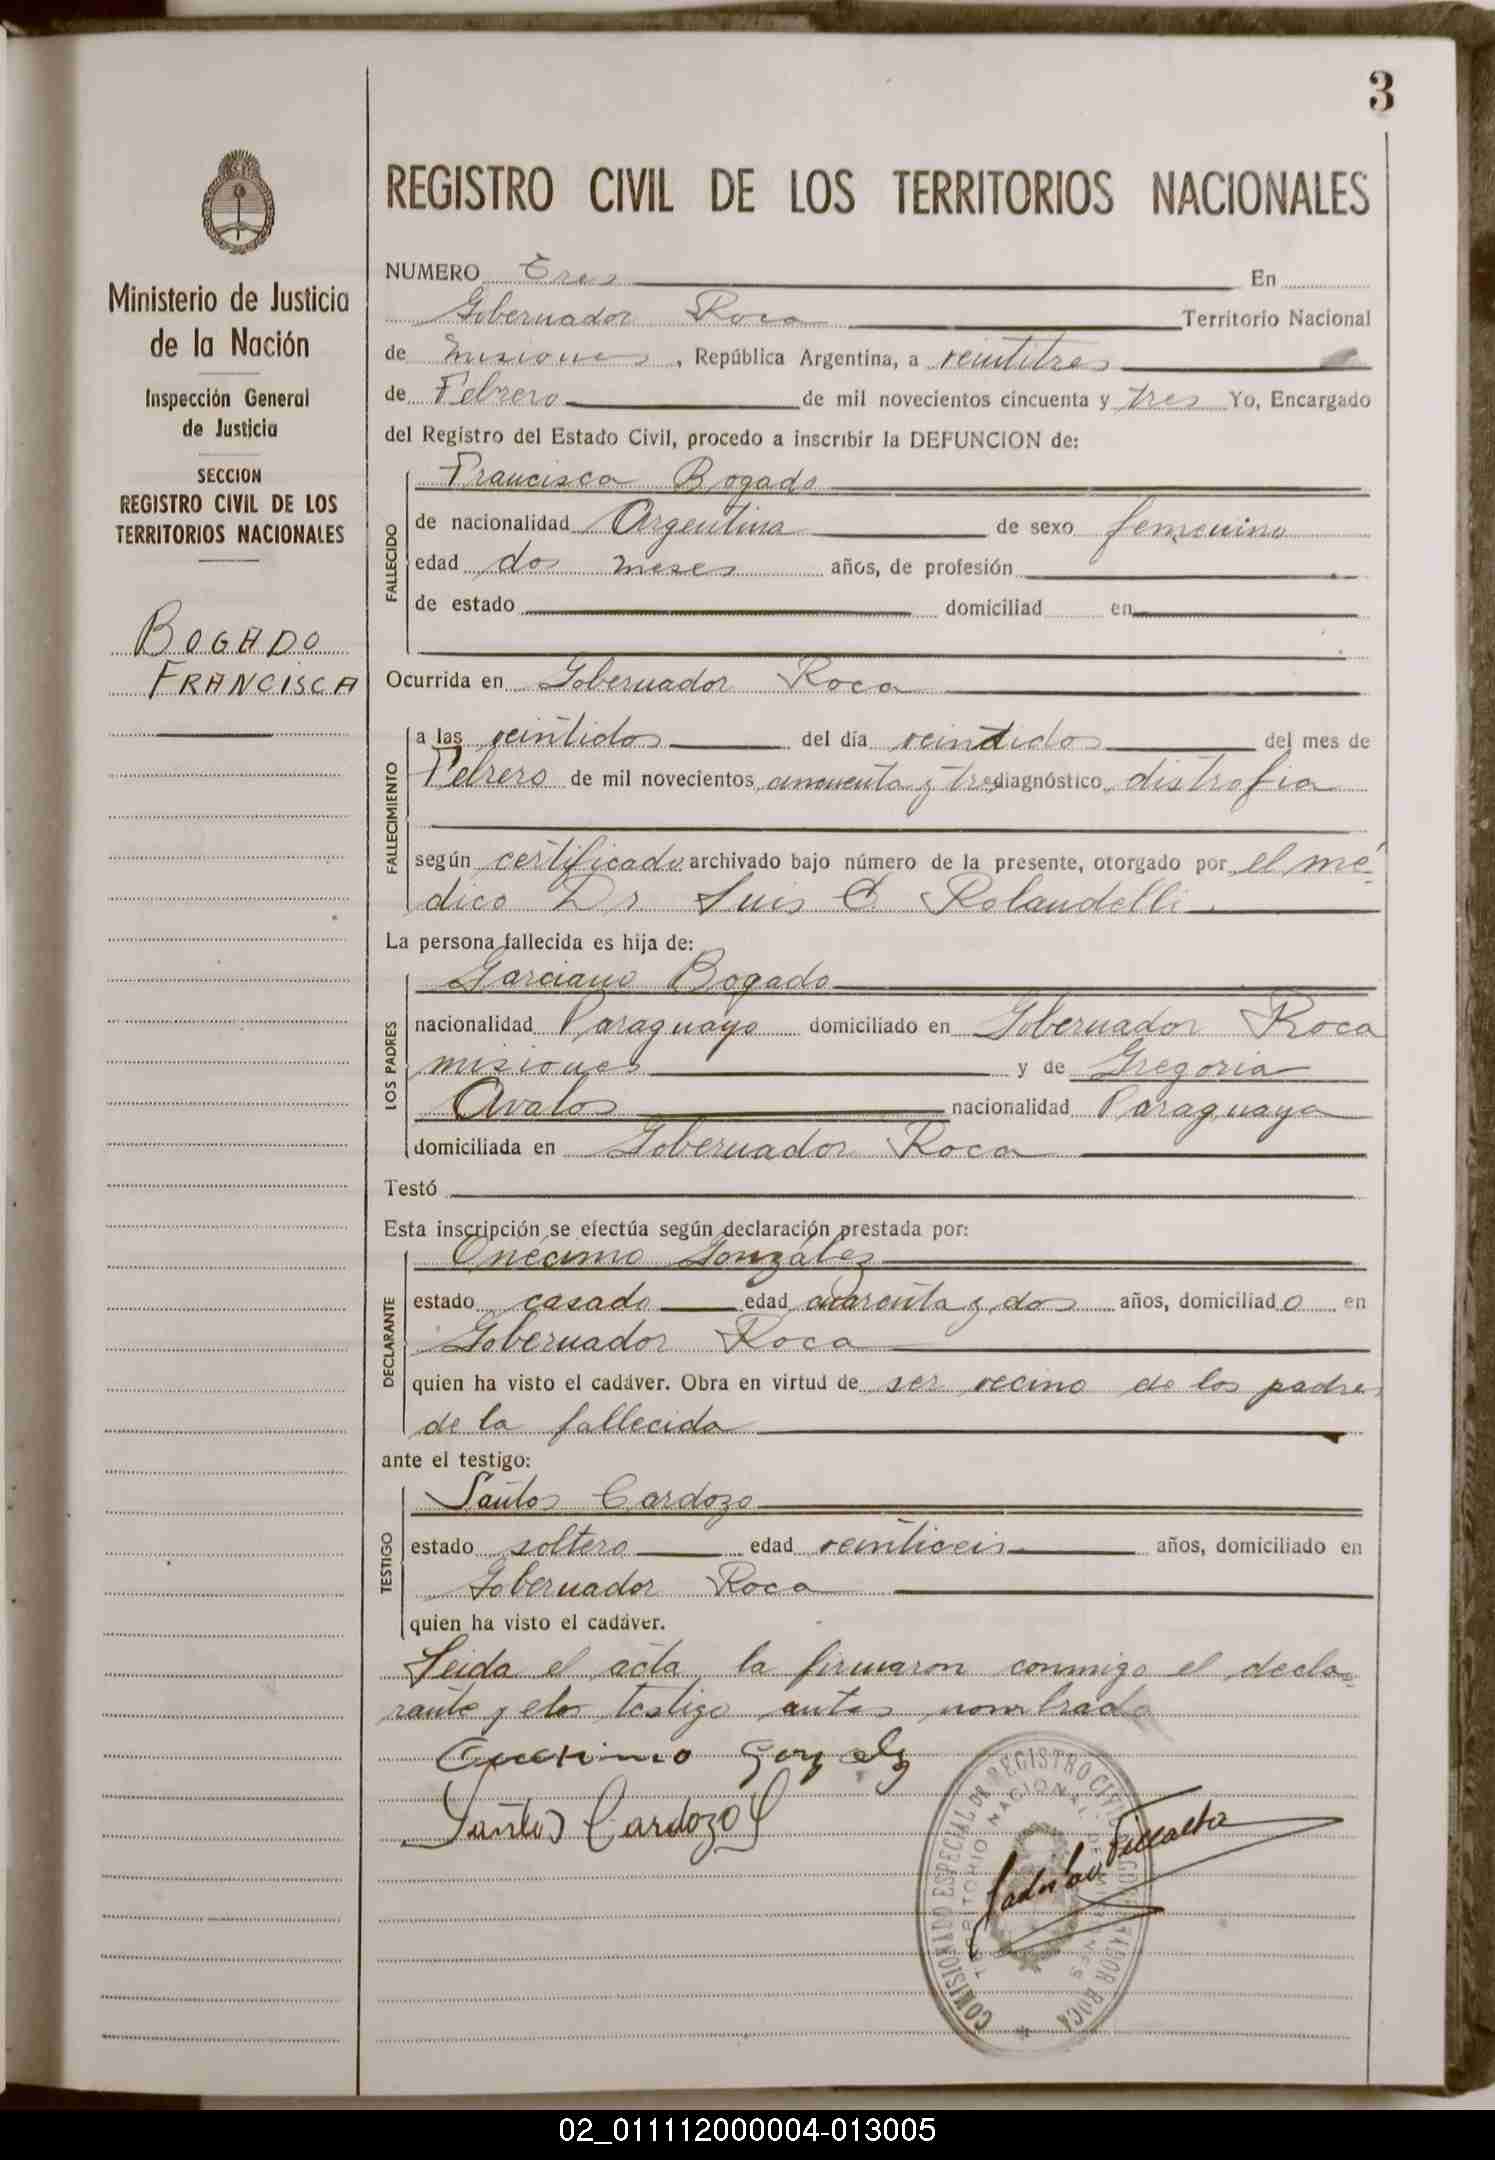 3
Ministerio de Justicia
de la Nación
Inspección General
de Justicia
SECCION
REGISTRO CIVIL DE LOS
TERRITORIOS NACIONALES
BOGADO
FRANCISCA
REGISTRO CIVIL DE LOS TERRITORIOS NACIONALES
NUMERO Tres En
Gobernador Roca Territorio Nacional
de misiones, República Argentina, a veintitres
de Febrero de mil novecientos cincuenta y tres Yo, Encargado
del Registro del Estado Civil, procedo a inscribir la DEFUNCION de:
FALLECIDO
Francisca Bogado
de nacionalidad Argentina de sexo femenino
edad dos meses años, de profesión
de estado domiciliad en
Ocurrida en Gobernador Roca
FALLECIMIENTO
a las veintidos del día veintidos del mes de
Febrero de mil novecientos cincuenta y tres diagnóstico distrofia
según certificado archivado bajo número de la presente, otorgado por el mé-
dico Dr Luis C. Rolandelli
La persona fallecida es hija de:
LOS PADRES
Garciano Bogado
nacionalidad Paraguayo domiciliado en Gobernador Roca
misiones y de Gregoria
Avalos nacionalidad Paraguaya
domiciliada en Gobernador Roca
Testó
Esta inscripción se efectúa según declaración prestada por:
DECLARANTE
Onécimo González
estado casado edad cuarenta y dos años, domiciliado en
Gobernador Roca
quien ha visto el cadáver. Obra en virtud de ser vecino de los padres
de la fallecida
ante el testigo:
TESTIGO
Santos Cardozo
estado soltero edad veinticeis años, domiciliado en
Gobernador Roca
quien ha visto el cadáver.
Leida el acta, la firmaron conmigo el decla-
rante y el testigo antes nombrado
Onecimo Gonzalez
Santos Cardozo
COMISIONADO ESPECIAL DE REGISTRO CIVIL GOBERNADOR ROCA
TERRITORIO NACIONAL DE MISIONES
02_011112000004-013005